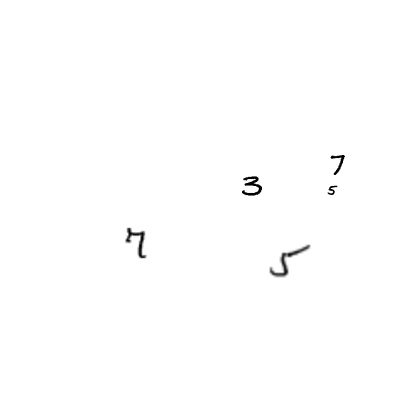 7
3
5
7
5